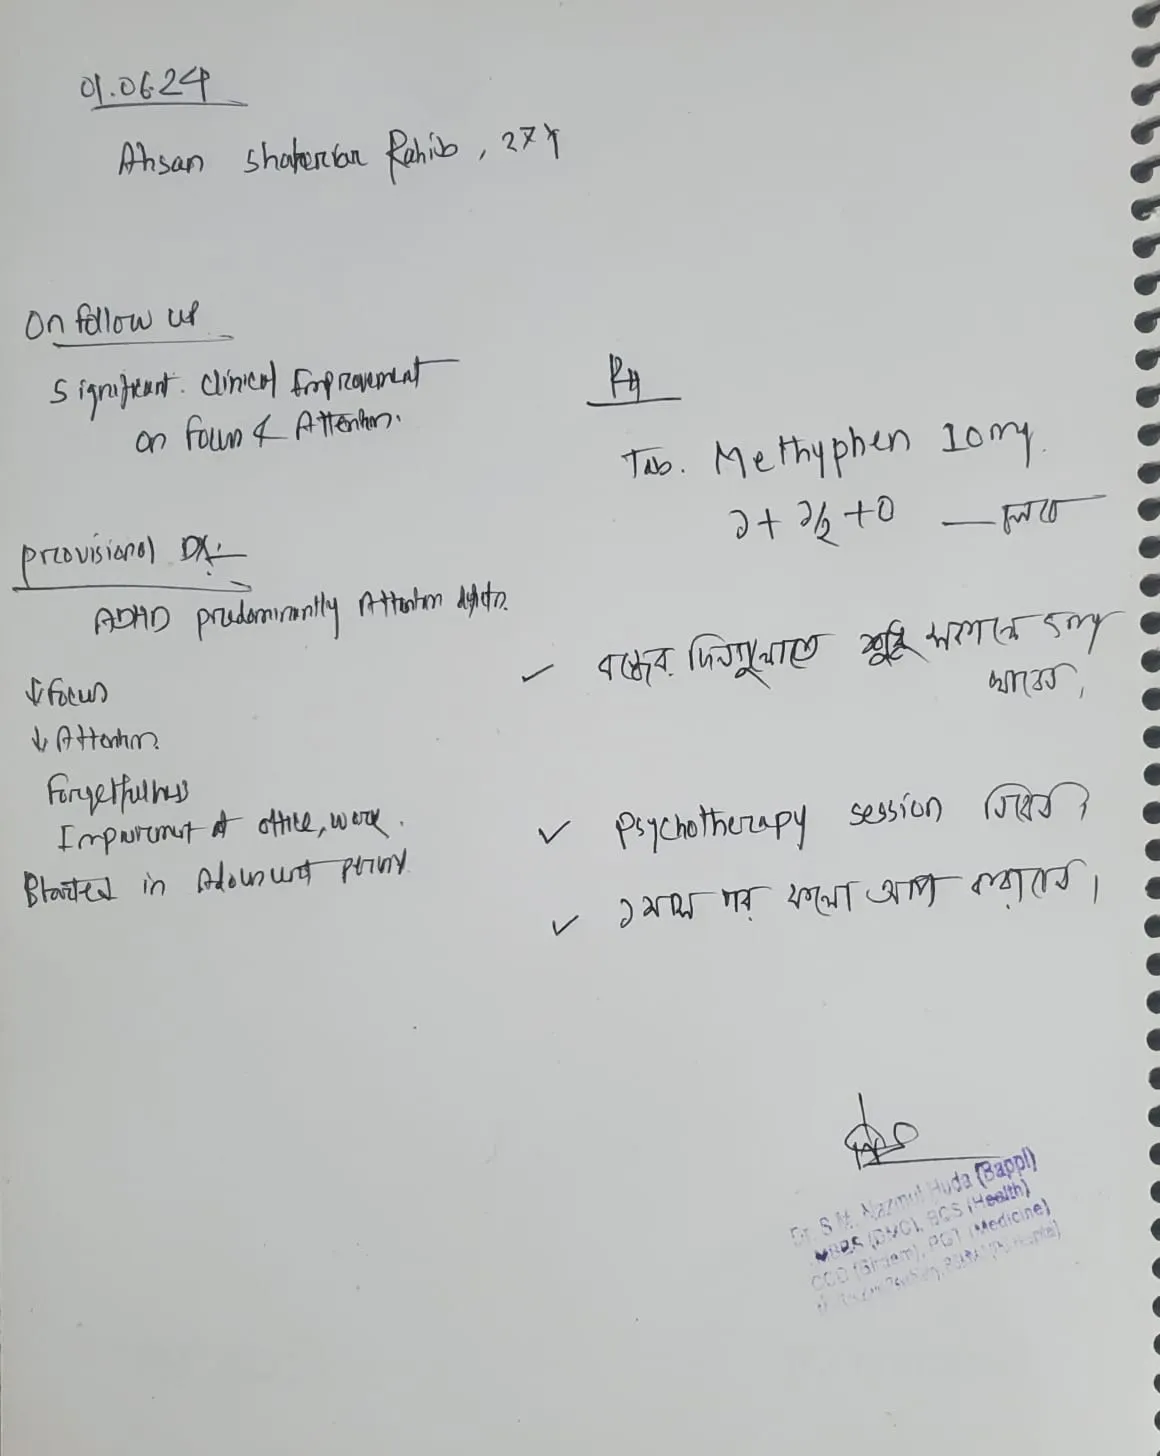 01.06.24
Ahsan Shaherior Rahib, 27y
On follow up
Significant clinical improvement
on focus & Attention.
Provisional Dx:
ADHD predominantly Attention
↓ Focus
↓ Attention
Forgetfulness
Impairment at office, work.
Started in Adolescent period
Rx
Tab. Methyphen 10mg.
১ + ১/২ + 0 — চলবে
✓ বন্ধের দিনগুলোতে শুধু সকালে 5mg
খাবেন,
✓ Psychotherapy session নিবেন।
✓ ১ মাস পর ফলো আপ করাবেন।
Dr. S.M. Nazmul Huda (Bappi)
MBBS (DMC), BCS (Health)
CCD (Birdem), PGT (Medicine)